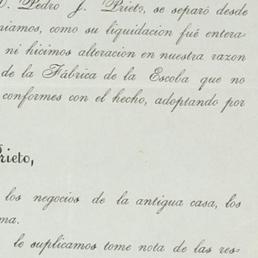 D. Pedro J. Prieto, se separó desde
niamos, como su liquidacion fué entera-
ni hicimos alteracion en nuestra razon
de la Fábrica de la Escoba que no
conformes con el hecho, adoptando por
Prieto,
los negocios de la antigua casa, los
ma.
le suplicamos tome nota de las res-